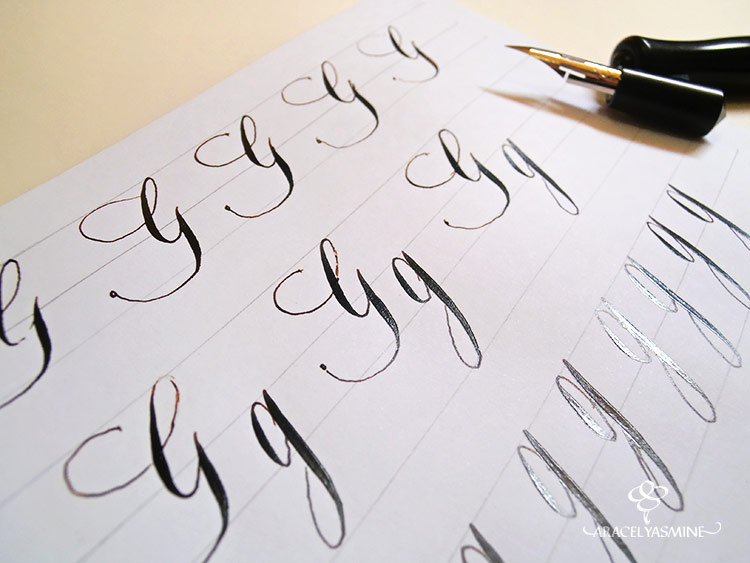 G G G G G
G g G g G g
g g g g g g g
ARACELYASMINE